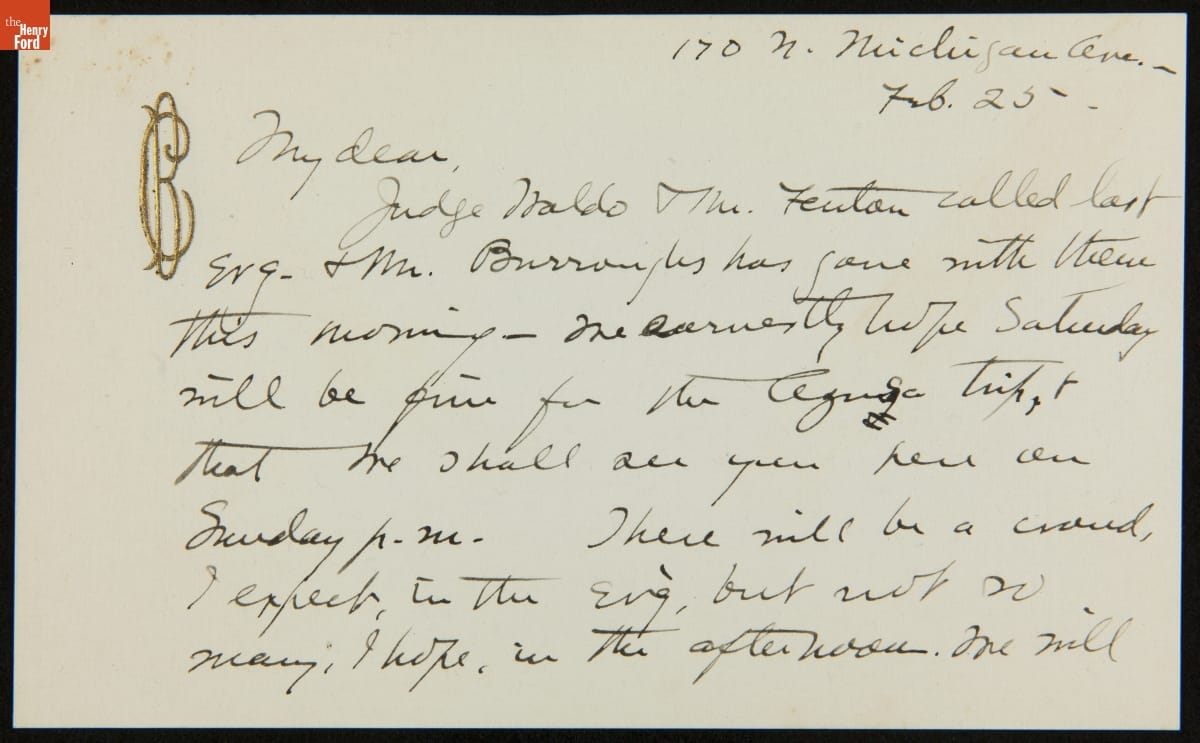 the
Henry
Ford
170 N. Michigan Ave. –
Feb. 25 –
CB
My dear,
Judge Waldo & Mr. Fenton called last
Evg – & Mr. Burroughs has gone with them
this morning – We earnestly hope Saturday
will be fine for the Azusa trip, &
that we shall see you here on
Sunday p.m. There will be a crowd,
I expect, in the Ev'g, but not so
many, I hope, in the afternoon. We will